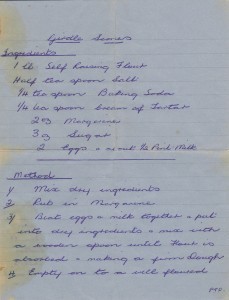 Girdle Scones
Ingredients
1 lb Self Raising Flour
Half tea spoon Salt
1/4 tea spoon Baking Soda
1/4 tea spoon Cream of Tartar
2 oz Margarine
3 oz Sugar
2 Eggs + about 1/2 Pint Milk.
Method
1/ Mix dry ingredients
2/ Rub in Margarine
3/ Beat eggs + milk together + put
into dry ingredients + mix with
a wooden spoon until flour is
absorbed + making a firm Dough
4/ Empty on to a well floured
PTO.